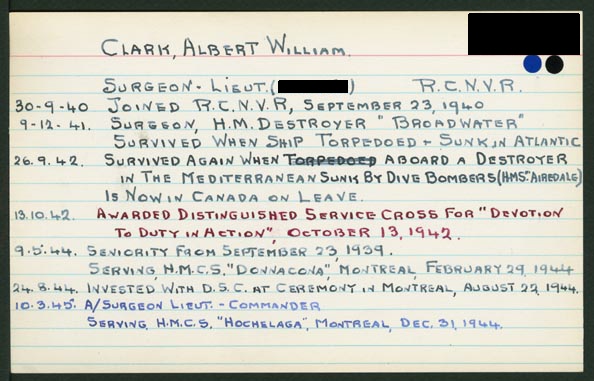 CLARK, ALBERT WILLIAM.
SURGEON - LIEUT. ( ) R.C.N.V.R.
30-9-40 JOINED R.C.N.V.R, SEPTEMBER 23, 1940
9-12-41. SURGEON, H.M. DESTROYER "BROADWATER"
SURVIVED WHEN SHIP TORPEDOED + SUNK IN ATLANTIC
26.9.42. SURVIVED AGAIN WHEN TORPEDOED ABOARD A DESTROYER
IN THE MEDITERRANEAN SUNK BY DIVE BOMBERS (H.M.S. "AIREDALE)
IS NOW IN CANADA ON LEAVE.
13.10.42. AWARDED DISTINGUISHED SERVICE CROSS FOR "DEVOTION
TO DUTY IN ACTION", OCTOBER 13, 1942.
9.5.44. SENIORITY FROM SEPTEMBER 23, 1939.
SERVING, H.M.C.S. "DONNACONA", MONTREAL, FEBRUARY 29, 1944
24.8.44. INVESTED WITH D.S.C. AT CEREMONY IN MONTREAL, AUGUST 22, 1944.
10.3.45. A/SURGEON LIEUT. - COMMANDER
SERVING, H.M.C.S. "HOCHELAGA", MONTREAL, DEC. 31, 1944.